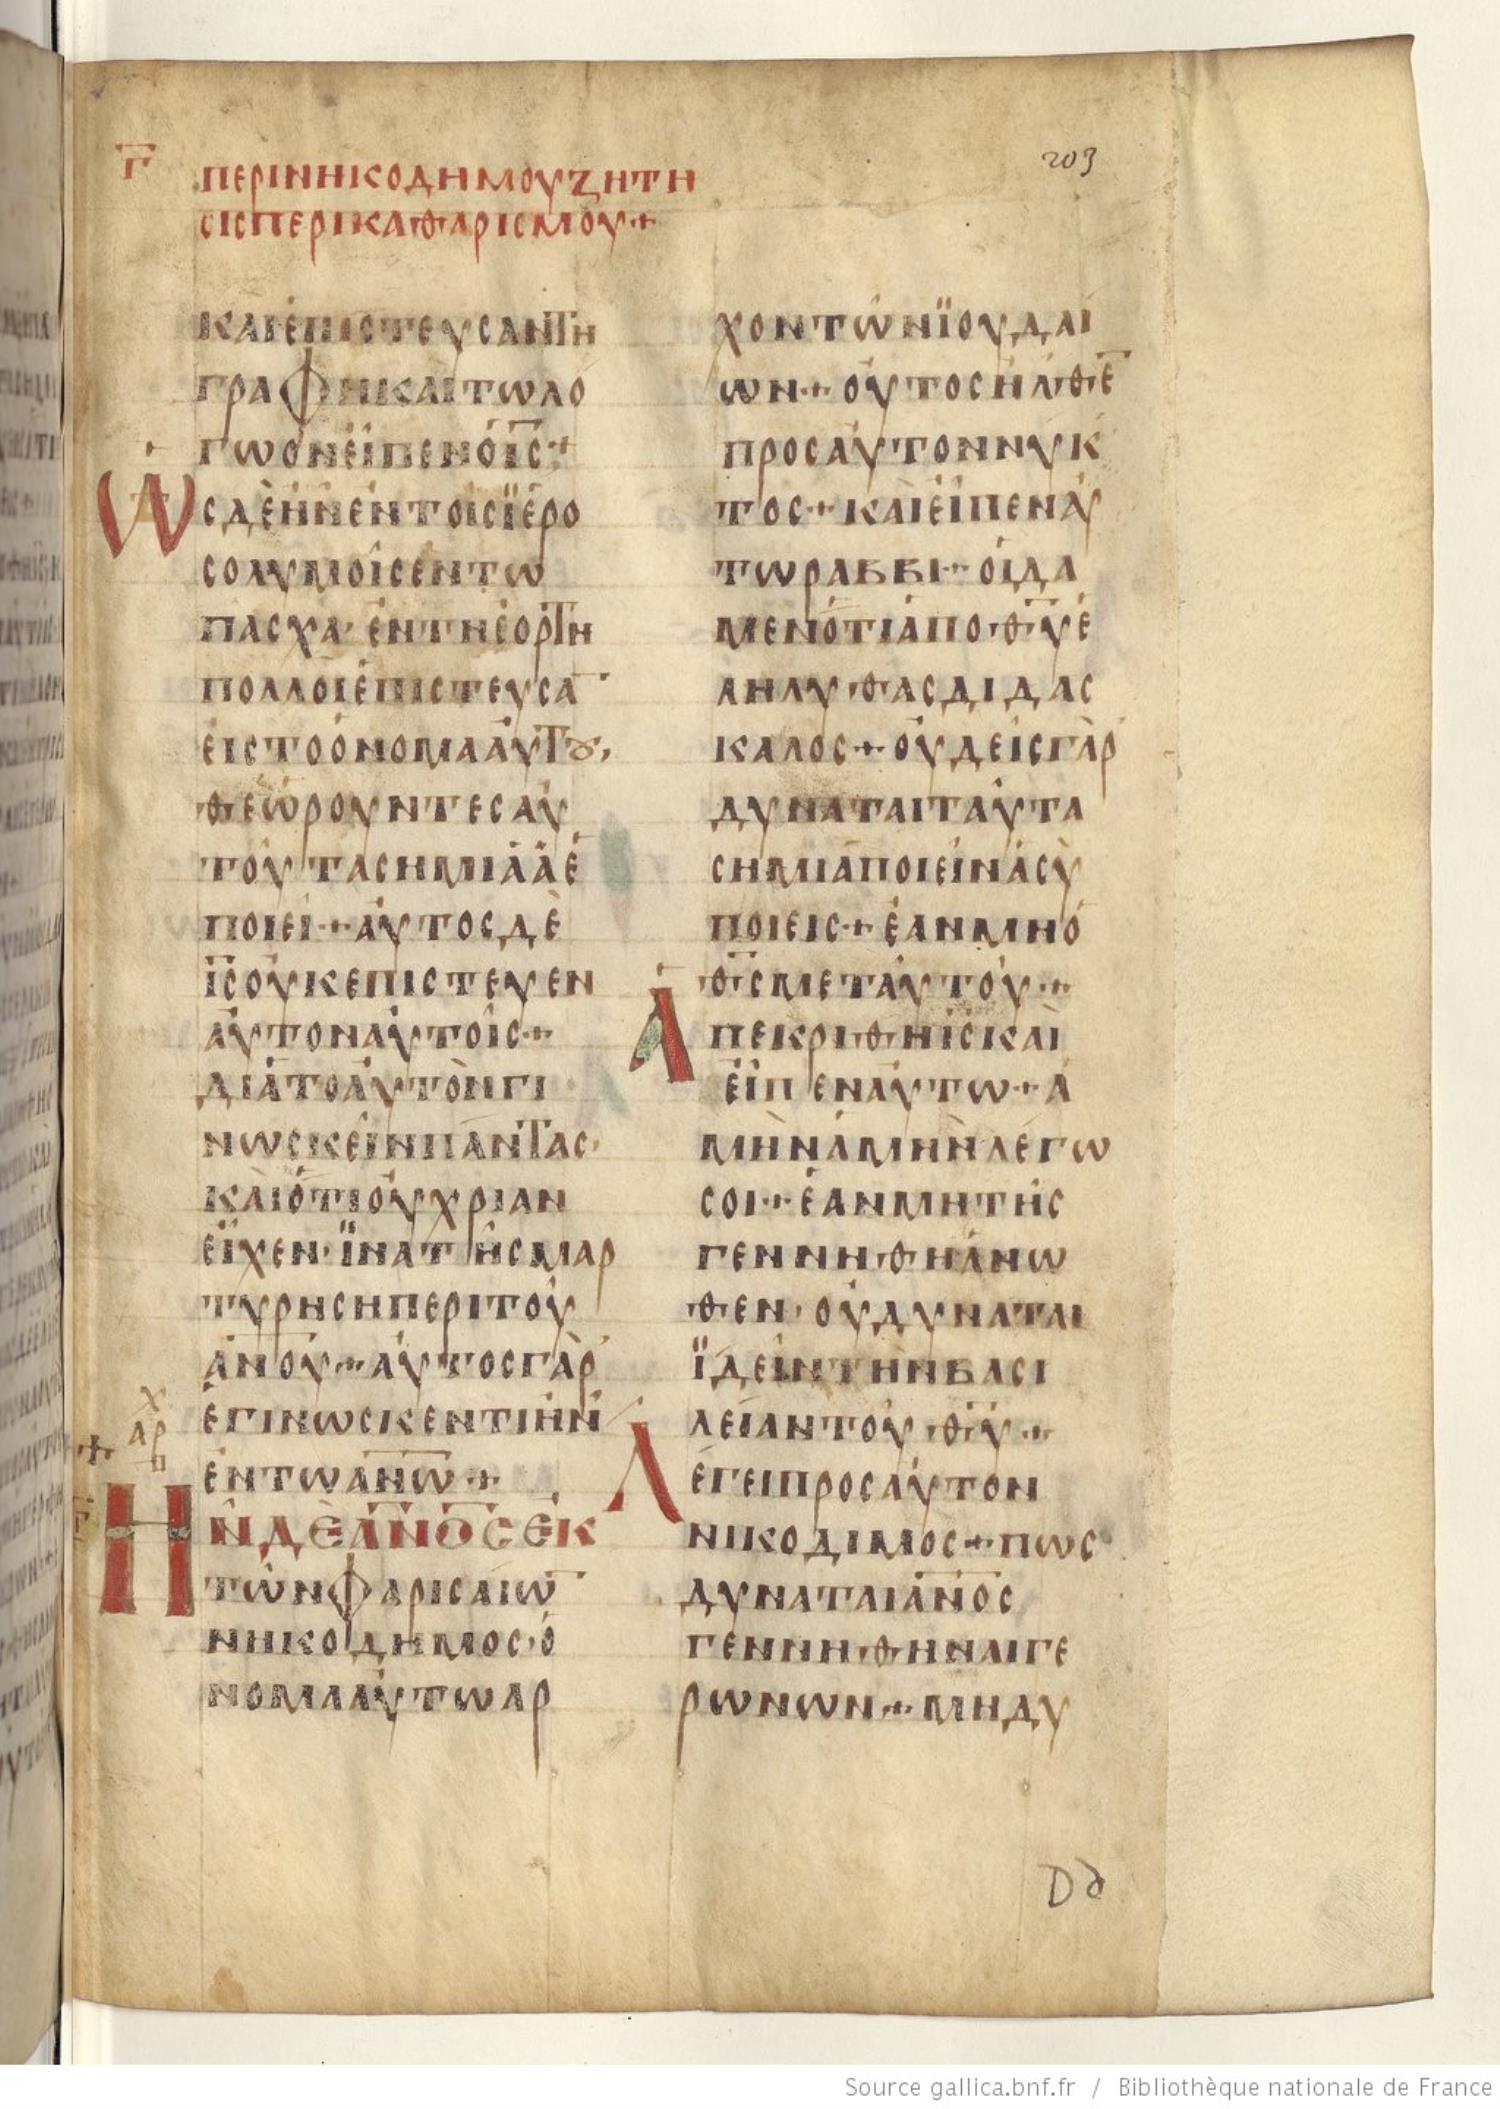 Γ̅
ΠΕΡΙΝΗΚΟΔΗΜΟΥΖΗΤΗ
ΣΙΣΠΕΡΙΚΑΘΑΡΙΣΜΟΥ+
203
ΚΑΙΕΠΙΣΤΕΥΣΑΝΤΗ
ΓΡΑΦΗΚΑΙΤΩΛΟ
ΓΩΟΝΕΙΠΕΝΟΙ̅Σ̅+
ΩΣΔΕΗΝΕΝΤΟΙΣΪΕΡΟ
ΣΟΛΥΜΟΙΣΕΝΤΩ
ΠΑΣΧΑ·ΕΝΤΗΕΟΡΤΗ
ΠΟΛΛΟΙΕΠΙΣΤΕΥΣΑ̅
ΕΙΣΤΟΟΝΟΜΑΑΥΤȢ,
ΘΕΩΡΟΥΝΤΕΣΑΥ
ΤΟΥΤΑΣΗΜΙΑΑΕ
ΠΟΙΕΙ+ΑΥΤΟΣΔΕ
Ι̅Σ̅ΟΥΚΕΠΙΣΤΕΥΕΝ
ΑΥΤΟΝΑΥΤΟΙΣ+
ΔΙΑΤΟΑΥΤΟΝΓΙ
ΝΩΣΚΕΙΝΠΑΝΤΑΣ·
ΚΑΙΟΤΙΟΥΧΡΙΑΝ
ΕΙΧΕΝ·ΪΝΑΤΗΣΜΑΡ
ΤΥΡΗΣΗΠΕΡΙΤΟΥ
Α̅Ν̅Ο̅Υ̅+ΑΥΤΟΣΓΑΡ
ΕΓΙΝΩΣΚΕΝΤΙΗΝ
ΕΝΤΩΑ̅Ν̅Ω̅+
Χ
ΑΡ
+
ΗΝΔΕΑ̅Ν̅Ο̅Σ̅ΕΚ
ΤΩΝΦΑΡΙΣΑΙΩ̅
ΝΗΚΟΔΗΜΟΣ·Ο
ΝΟΜΑΑΥΤΩΑΡ
ΧΟΝΤΩΝΪΟΥΔΑΙ
ΩΝ+ΟΥΤΟΣΗΛΘΕ̅
ΠΡΟΣΑΥΤΟΝΝΥΚ
ΤΟΣ+ΚΑΙΕΙΠΕΝΑΥ
ΤΩΡΑΒΒΙ+ΟΙΔΑ
ΜΕΝΟΤΙΑΠΟΘ̅Υ̅Ε
ΛΗΛΥΘΑΣΔΙΔΑΣ
ΚΑΛΟΣ+ΟΥΔΕΙΣΓΑΡ
ΔΥΝΑΤΑΙΤΑΥΤΑ
ΣΗΜΙΑΠΟΙΕΙΝΑΣΥ
ΠΟΙΕΙΣ+ΕΑΝΜΗΟ
Θ̅Σ̅ΜΕΤΑΥΤΟΥ+
ΑΠΕΚΡΙΘΗΙ̅Σ̅ΚΑΙ
ΕΙΠΕΝΑΥΤΩ+Α
ΜΗΝΑΜΗΝΛΕΓΩ
ΣΟΙ+ΕΑΝΜΗΤΗΣ
ΓΕΝΝΗΘΗΑΝΩ
ΘΕΝ·ΟΥΔΥΝΑΤΑΙ
ΪΔΕΙΝΤΗΝΒΑΣΙ
ΛΕΙΑΝΤΟΥΘ̅Υ̅+
ΛΕΓΕΙΠΡΟΣΑΥΤΟΝ
ΝΙΚΟΔΙΜΟΣ+ΠΩΣ
ΔΥΝΑΤΑΙΑ̅Ν̅Ο̅Σ̅
ΓΕΝΝΗΘΗΝΑΙΓΕ
ΡΩΝΩΝ+ΜΗΔΥ
Dd
Source gallica.bnf.fr / Bibliothèque nationale de France